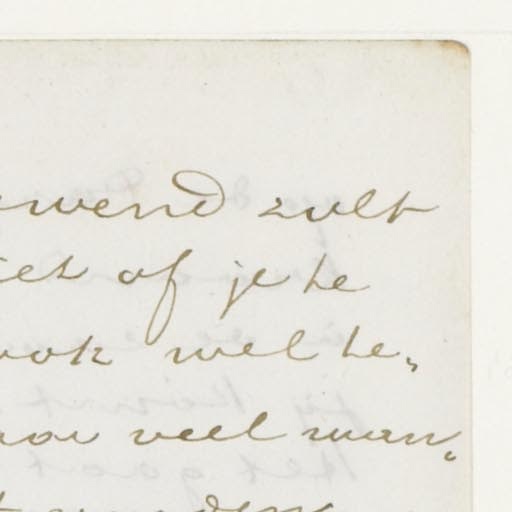 wend zult
iet of je te
ook wel te„
nou veel man„